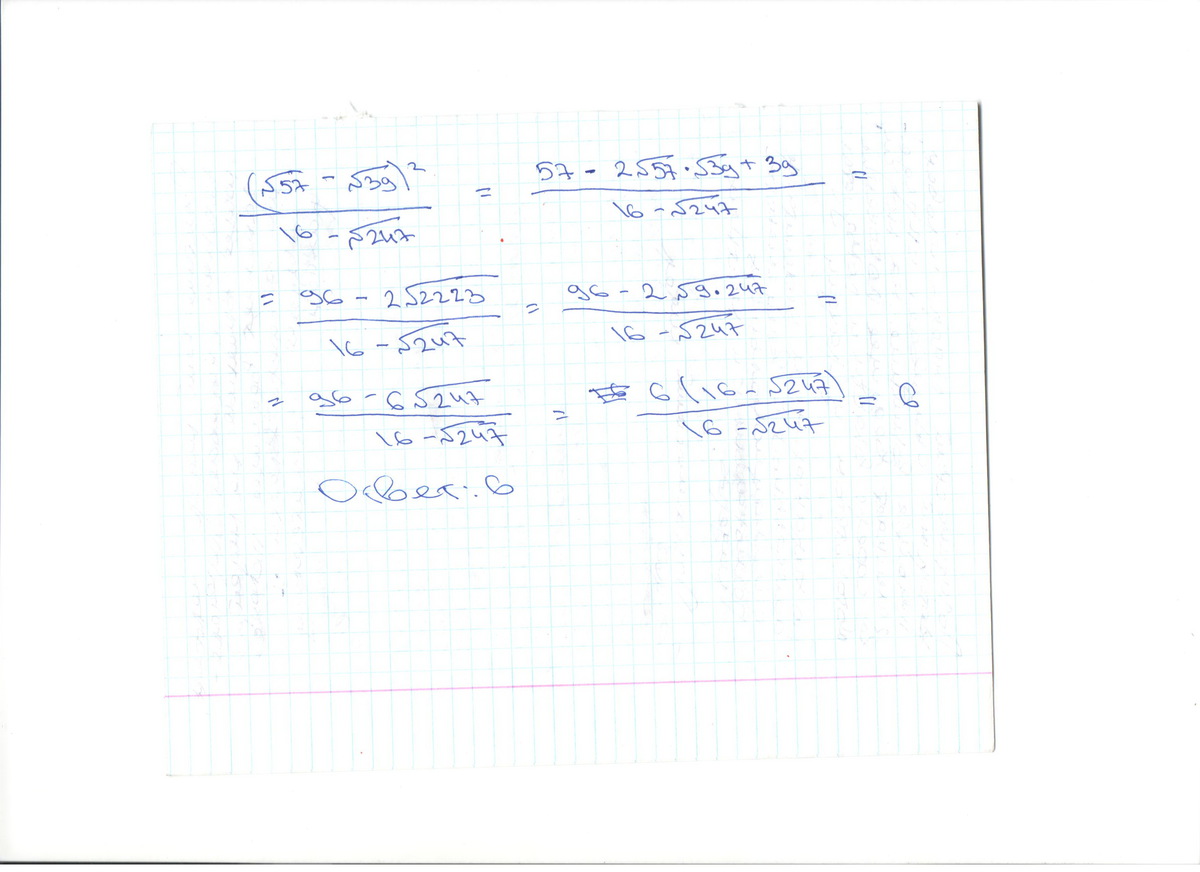 (√57 - √39)² / 16 - √247 = 57 - 2√57·√39 + 39 / 16 - √247 =
= 96 - 2√2223 / 16 - √247 = 96 - 2√9·247 / 16 - √247 =
= 96 - 6√247 / 16 - √247 = 6(16 - √247) / 16 - √247 = 6
Ответ: 6